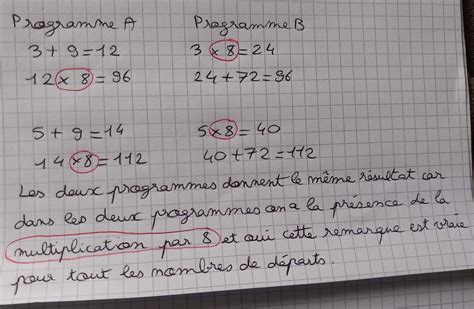 Programme A Programme B
3 + 9 = 12 3 × 8 = 24
12 × 8 = 96 24 + 72 = 96
5 + 9 = 14 5 × 8 = 40
14 × 8 = 112 40 + 72 = 112
Les deux programmes donnent le même résultat car
dans les deux programmes on a la présence de la
multiplication par 8 et oui cette remarque est vraie
pour tout les nombres de départs.